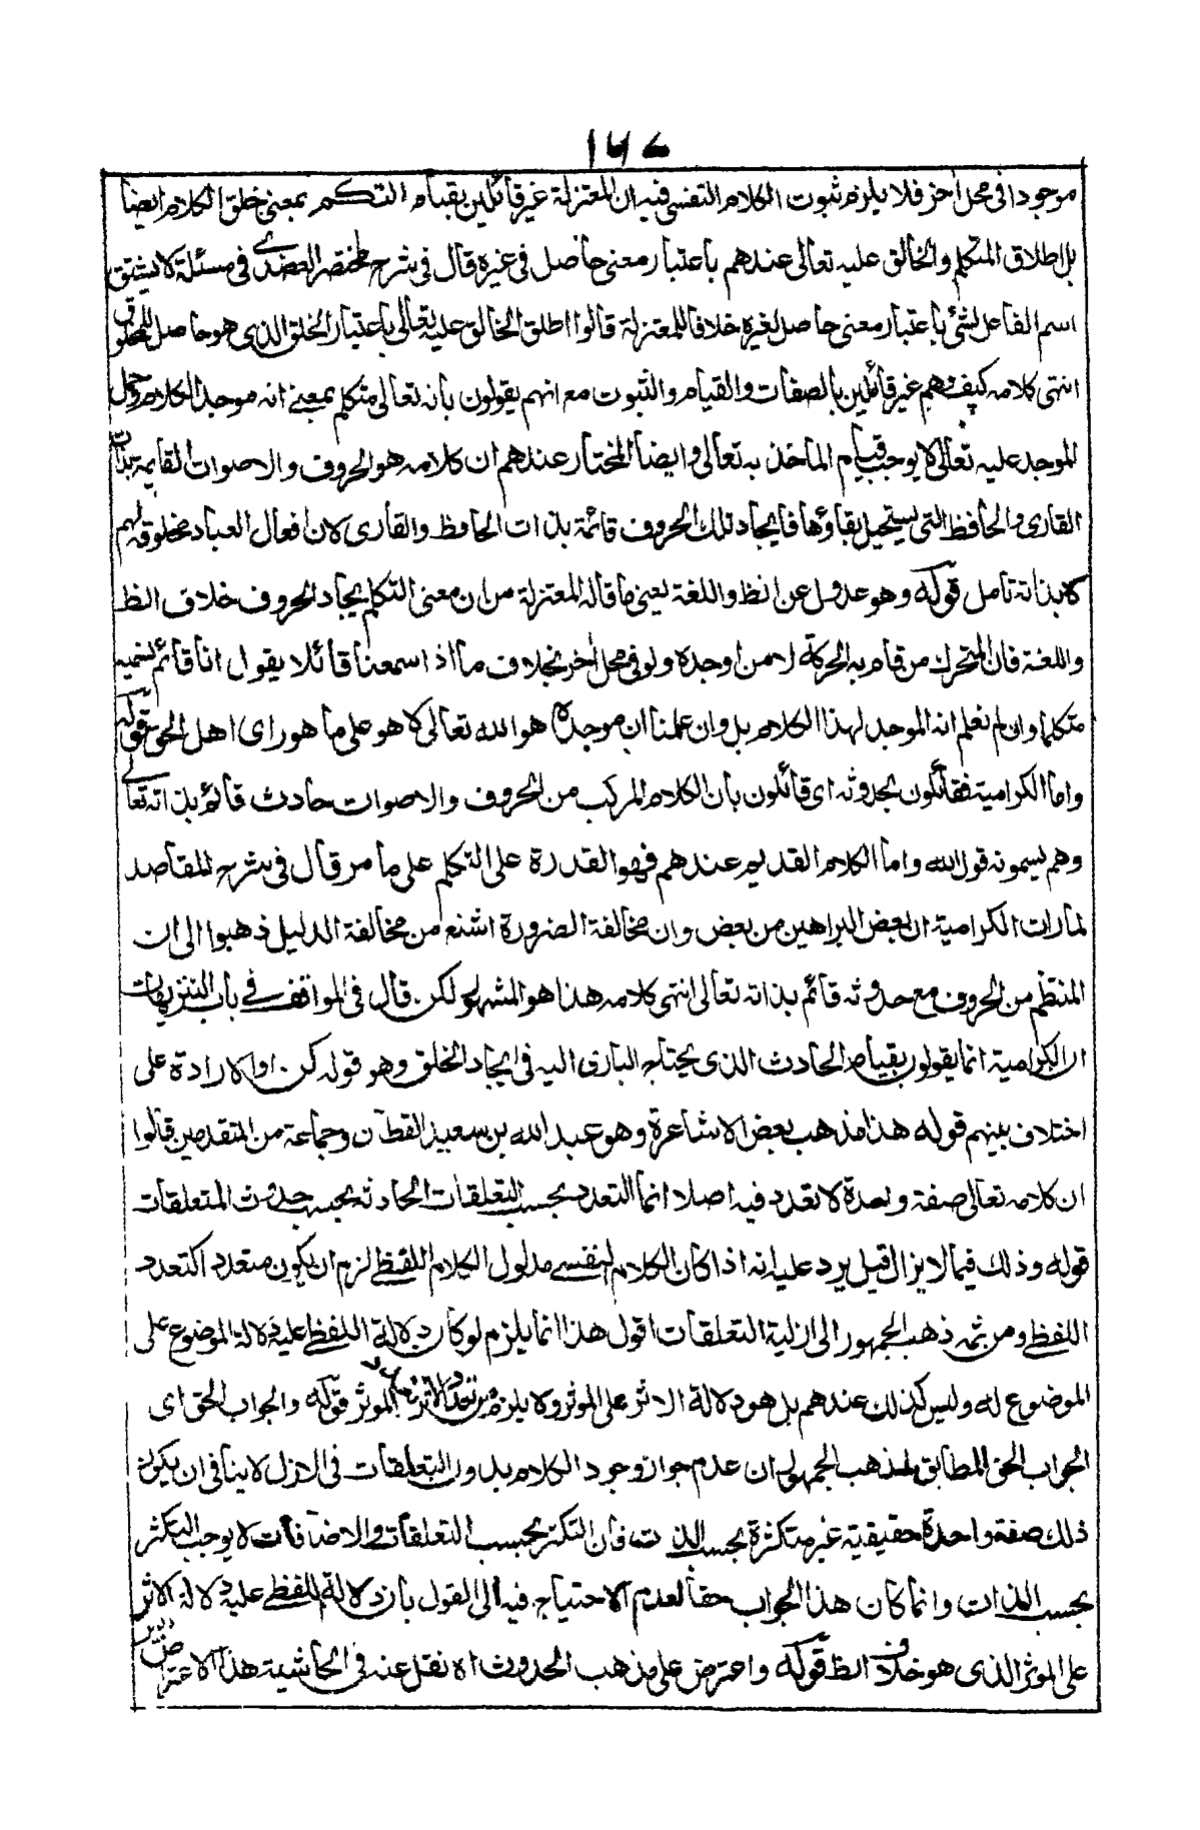 ١٦٧
موجودا فى محل آخر فلا يلزم ثبوت الكلام النفسى فيه ان المعتزلة غير قائلين بقيام التكلم بمعنى خلق الكلام ايضا
بل اطلاق المتكلم والخالق عليه تعالى عندهم باعتبار معنى حاصل فى غيره قال فى شرح مختصر العضدى فى مسئلة لا يشتق
اسم الفاعل لشئ باعتبار معنى حاصل لغيره خلافا للمعتزلة قالوا اطلق الخالق عليه تعالى باعتبار الخلق الذى هو حاصل للمخلوق
انتهى كلامه كيف وهم غير قائلين بالصفات والقيام والثبوت مع انهم يقولون بانه تعالى متكلم بمعنى انه موجد الكلام وحمل
الموجد عليه تعالى لا يوجب قيام المأخذ به تعالى وايضا المختار عندهم ان كلامه هو الحروف والاصوات القايمة بذات
القارى والحافظ التى يستحيل بقاؤها فايجاد تلك الحروف قائمة بذات الحافظ والقارى لان افعال العباد مخلوقة لهم
لا بذاته تأمل قوله وهو عدول عن الظ واللغة يعنى ما قاله المعتزلة من ان معنى التكلم ايجاد الحروف خلاف الظ
واللغة فان المتحرك من قام به الحركة لا من اوجده ولو فى محل آخر بخلاف ما اذا سمعنا قائلا يقول انا قائم نسميه
متكلما وان لم نعلم انه الموجد لهذا الكلام بل وان علمنا ان موجده هو الله تعالى كما هو على ما هو راى اهل الحق قوله
واما الكرامية فقائلون بحدوثه اى قائلون بان الكلام المركب من الحروف والاصوات حادث قائم بذاته تعالى
وهم يسمونه قول الله واما الكلام القديم عندهم فهو القدرة على التكلم على ما مر قال فى شرح المقاصد
لما رات الكرامية ان بعض البراهين من بعض وان مخالفة الضرورة اشنع من مخالفة الدليل ذهبوا الى ان
المنتظم من الحروف مع حدوثه قائم بذاته تعالى انتهى كلامه هذا هو المشهور لكن قال فى المواقف فى باب التنزيهات
ان الكرامية انما يقولون بقيام الحادث الذى يحتاج البارى اليه فى ايجاد الخلق وهو قوله كن او الارادة على
اختلاف بينهم قوله هذا مذهب بعض الاشاعرة وهو عبد الله بن سعيد القطان وجماعة من المتقدمين قالوا
ان كلامه تعالى صفة واحدة لا تعدد فيه اصلا انما التعدد بحسب التعلقات الحادثة بحسب حدوث المتعلقات
قوله وذلك فيما لا يزال قيل يرد عليه انه اذا كان الكلام النفسى مدلول الكلام اللفظى لزم ان يكون متعددا كتعدد
اللفظى ومن ثمه ذهب الجمهور الى ازلية التعلقات اقول هذا انما يلزم لو كان دلالة اللفظى عليه دلالة الموضوع على
الموضوع له وليس كذلك عندهم بل هو دلالة الاثر على الموثر ولا يلزم من تعدد الاثر تعدد الموثر قوله والجواب الحق اى
الجواب الحق المطابق لمذهب الجمهور ان عدم جواز وجود الكلام بدون التعلقات فى الازل لا ينافى ان يكون
ذلك صفة واحدة حقيقية غير متكثرة بحسب الذات فان التكثر بحسب التعلقات والاضافات لا يوجب التكثر
بحسب الذات وانما كان هذا الجواب حقا لعدم الاحتياج فيه الى القول بان دلالة اللفظى عليه دلالة الاثر
على الموثر الذى هو خلاف الظ قوله واعترض على مذهب الحدوث اه نقل عنه فى الحاشية هذا الاعتراض